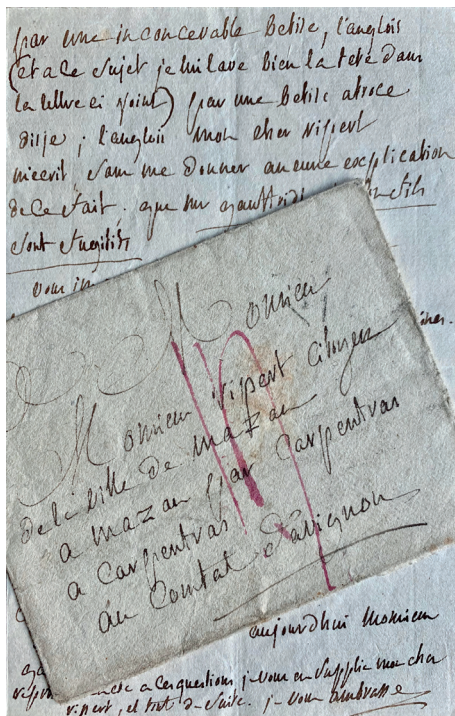 par une inconcevable Betise, l'anglois
(et a ce sujet je lui lave bien la tete dans
la lettre ci joint) par une Betise atroce
disje ; l'anglois mon cher ripert
m'ecrit, sans me donner aucune explication
de ce fait, que mr gauffridi fils
sont fugitifs
vous
Monsieur
Monsieur ripert Citoyen
de la ville de mazan
a mazan par Carpentras
a Carpentras
au Comtat d'avignon
aujourdhui Monsieur
a ces questions, je vous en supplie mon cher
ripert, et tout de suite. je vous embrasse